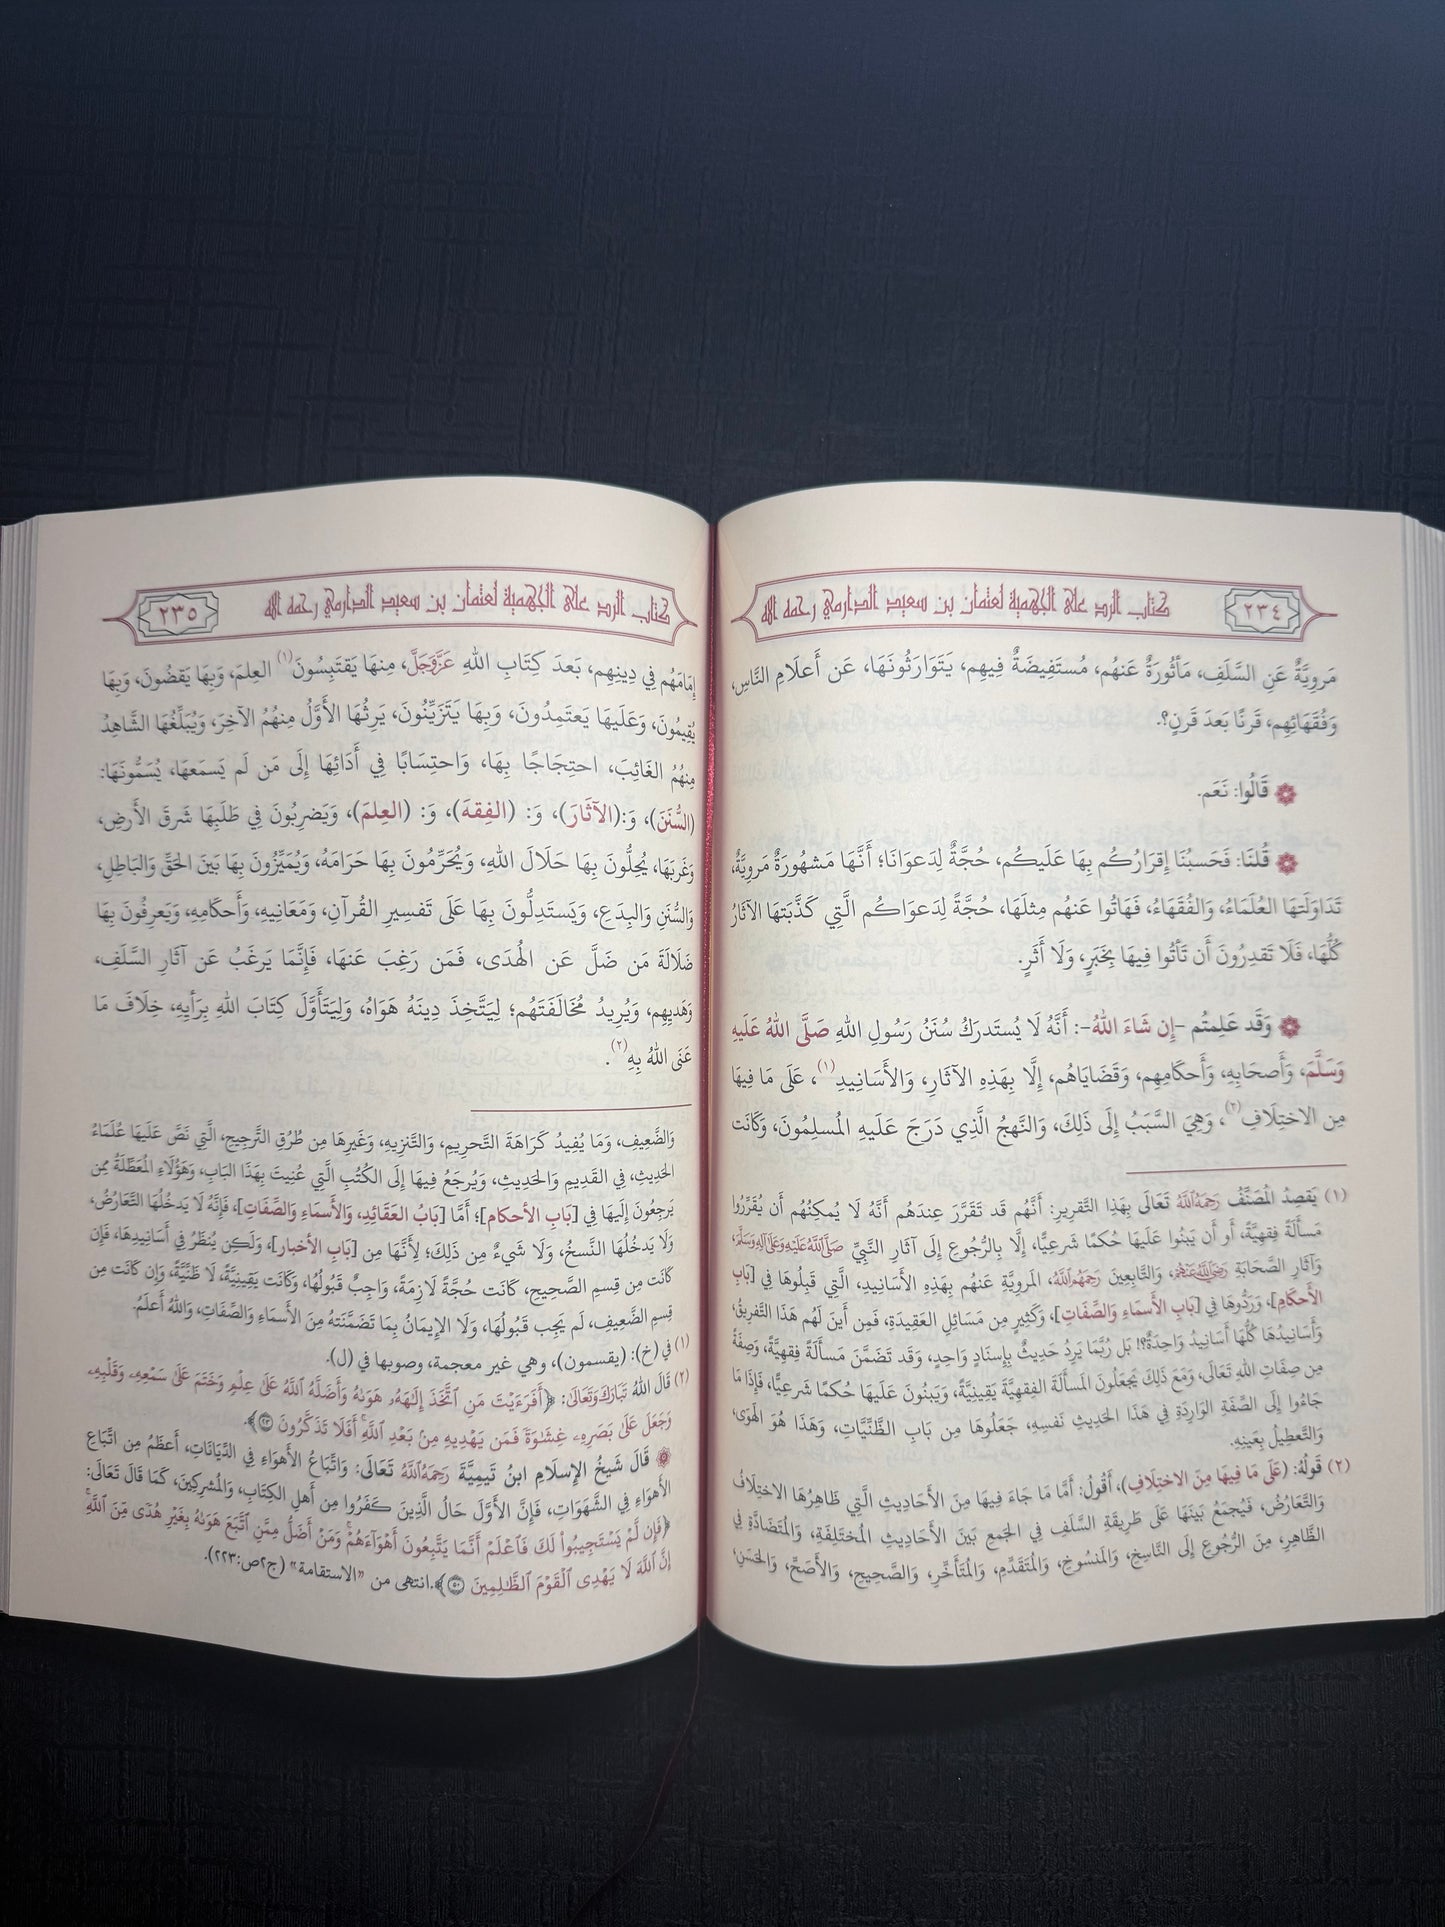 ٢٣٤
كتاب الرد على الجهمية لعثمان بن سعيد الدارمي رحمه الله
مَروِيَّةٌ عَنِ السَّلَفِ، مَأثُورَةٌ عَنهُم، مُستَفِيضَةٌ فِيهِم، يَتَوَارَثُونَهَا، عَن أَعلَامِ النَّاسِ،
وَفُقَهَائِهِم، قَرنًا بَعدَ قَرنٍ؟.
قَالُوا: نَعَم.
قُلنَا: فَحَسبُنَا إِقرَارُكُم بِهَا عَلَيكُم، حُجَّةٌ لِدَعوَانَا؛ أَنَّهَا مَشهُورَةٌ مَروِيَّةٌ،
تَدَاوَلَتهَا العُلَمَاءُ، وَالفُقَهَاءُ، فَهَاتُوا عَنهُم مِثلَهَا، حُجَّةً لِدَعوَاكُم الَّتِي كَذَّبَتهَا الآثَارُ
كُلُّهَا، فَلَا تَقدِرُونَ أَن تَأتُوا فِيهَا بِخَبَرٍ، وَلَا أَثَرٍ.
وَقَد عَلِمتُم -إِن شَاءَ اللهُ-: أَنَّهُ لَا يُستَدرَكُ سُنَنُ رَسُولِ اللهِ صَلَّى اللهُ عَلَيهِ
وَسَلَّمَ، وَأَصحَابِهِ، وَأَحكَامِهِم، وَقَضَايَاهُم، إِلَّا بِهَذِهِ الآثَارِ، وَالأَسَانِيدِ(١)، عَلَى مَا فِيهَا
مِن الاختِلَافِ(٢)، وَهِيَ السَّبَبُ إِلَى ذَلِكَ، وَالنَّهجُ الَّذِي دَرَجَ عَلَيهِ المُسلِمُونَ، وَكَانَت
(١) يَقصِدُ المُصَنِّفُ رَحِمَهُ اللَّهُ تَعَالَى بِهَذَا التَّقرِيرِ: أَنَّهُم قَد تَقَرَّرَ عِندَهُم أَنَّهُ لَا يُمكِنُهُم أَن يُقَرِّرُوا
مَسأَلَةً فِقهِيَّةً، أَو أَن يَبنُوا عَلَيهَا حُكمًا شَرعِيًّا، إِلَّا بِالرُّجُوعِ إِلَى آثَارِ النَّبِيِّ صَلَّى اللَّهُ عَلَيْهِ وَعَلَى آلِهِ وَسَلَّمَ،
وَآثَارِ الصَّحَابَةِ رَضِيَ اللَّهُ عَنْهُمْ، وَالتَّابِعِينَ رَحِمَهُمُ اللَّهُ، المَروِيَّةِ عَنهُم بِهَذِهِ الأَسَانِيدِ، الَّتِي قَبِلُوهَا فِي [بَابِ
الأَحكَامِ]، وَرَدُّوهَا فِي [بَابِ الأَسمَاءِ وَالصِّفَاتِ]، وَكَثِيرٍ مِن مَسَائِلِ العَقِيدَةِ، فَمِن أَينَ لَهُم هَذَا التَّفرِيقُ،
وَأَسَانِيدُهَا كُلُّهَا أَسَانِيدُ وَاحِدَةٌ؟! بَل رُبَّمَا يَرِدُ حَدِيثٌ بِإِسنَادٍ وَاحِدٍ، وَقَد تَضَمَّنَ مَسأَلَةً فِقهِيَّةً، وَصِفَةً
مِن صِفَاتِ اللهِ تَعَالَى، وَمَعَ ذَلِكَ يَجعَلُونَ المَسأَلَةَ الفِقهِيَّةَ يَقِينِيَّةً، وَيَبنُونَ عَلَيهَا حُكمًا شَرعِيًّا، فَإِذَا مَا
جَاءُوا إِلَى الصِّفَةِ الوَارِدَةِ فِي هَذَا الحَدِيثِ نَفسِهِ، جَعَلُوهَا مِن بَابِ الظَّنِّيَّاتِ، وَهَذَا هُوَ الهَوَى،
وَالتَّعطِيلُ بِعَينِهِ.
(٢) قَولُهُ: (عَلَى مَا فِيهَا مِنَ الاختِلَافِ)، أَقُولُ: أَمَّا مَا جَاءَ فِيهَا مِنَ الأَحَادِيثِ الَّتِي ظَاهِرُهَا الاختِلَافُ
وَالتَّعَارُضُ، فَيُجمَعُ بَينَهَا عَلَى طَرِيقَةِ السَّلَفِ فِي الجَمعِ بَينَ الأَحَادِيثِ المُختَلِفَةِ، وَالمُتَضَادَّةِ فِي
الظَّاهِرِ، مِنَ الرُّجُوعِ إِلَى النَّاسِخِ، وَالمَنسُوخِ، وَالمُتَقَدِّمِ، وَالمُتَأَخِّرِ، وَالصَّحِيحِ، وَالأَصَحِّ، وَالحَسَنِ،
كتاب الرد على الجهمية لعثمان بن سعيد الدارمي رحمه الله
٢٣٥
إِمَامَهُم فِي دِينِهِم، بَعدَ كِتَابِ اللهِ عَزَّوَجَلَّ، مِنهَا يَقتَبِسُونَ(١) العِلمَ، وَبِهَا يَقضُونَ، وَبِهَا
يُقِيمُونَ، وَعَلَيهَا يَعتَمِدُونَ، وَبِهَا يَتَزَيِّنُونَ، يَرِثُهَا الأَوَّلُ مِنهُمُ الآخِرَ، وَيُبَلِّغُهَا الشَّاهِدُ
مِنهُمُ الغَائِبَ، احتِجَاجًا بِهَا، وَاحتِسَابًا فِي أَدَائِهَا إِلَى مَن لَم يَسمَعهَا، يُسَمُّونَهَا:
(السُّنَنَ)، وَ:(الآثَارَ)، وَ: (الفِقهَ)، وَ: (العِلمَ)، وَيَضرِبُونَ فِي طَلَبِهَا شَرقَ الأَرضِ،
وَغَربَهَا، يُحِلُّونَ بِهَا حَلَالَ اللهِ، وَيُحَرِّمُونَ بِهَا حَرَامَهُ، وَيُمَيِّزُونَ بِهَا بَينَ الحَقِّ وَالبَاطِلِ،
وَالسُّنَنِ وَالبِدَعِ، وَيَستَدِلُّونَ بِهَا عَلَى تَفسِيرِ القُرآنِ، وَمَعَانِيهِ، وَأَحكَامِهِ، وَيَعرِفُونَ بِهَا
ضَلَالَةَ مَن ضَلَّ عَنِ الهُدَى، فَمَن رَغِبَ عَنهَا، فَإِنَّمَا يَرغَبُ عَن آثَارِ السَّلَفِ،
وَهَديِهِم، وَيُرِيدُ مُخَالَفَتَهُم؛ لِيَتَّخِذَ دِينَهُ هَوَاهُ، وَلِيَتَأَوَّلَ كِتَابَ اللهِ بِرَأيِهِ، خِلَافَ مَا
عَنَى اللهُ بِهِ(٢).
وَالضَّعِيفِ، وَمَا يُفِيدُ كَرَاهَةَ التَّحرِيمِ، وَالتَّنزِيهِ، وَغَيرِهَا مِن طُرُقِ التَّرجِيحِ، الَّتِي نَصَّ عَلَيهَا عُلَمَاءُ
الحَدِيثِ، فِي القَدِيمِ وَالحَدِيثِ، وَيُرجَعُ فِيهَا إِلَى الكُتُبِ الَّتِي عُنِيَت بِهَذَا البَابِ، وَهَؤُلَاءِ المُعَطِّلَةُ مِمَّن
يَرجِعُونَ إِلَيهَا فِي [بَابِ الأحكام]؛ أَمَّا [بَابُ العَقَائِدِ، وَالأَسمَاءِ وَالصِّفَاتِ]، فَإِنَّهُ لَا يَدخُلُهَا التَّعَارُضُ،
وَلَا يَدخُلُهَا النَّسخُ، وَلَا شَيءٌ مِن ذَلِكَ؛ لِأَنَّهَا مِن [بَابِ الأَخبارِ]، وَلَكِن يُنظَرُ فِي أَسَانِيدِهَا، فَإِن
كَانَت مِن قِسمِ الصَّحِيحِ، كَانَت حُجَّةً لَازِمَةً، وَاجِبٌ قَبُولُهَا، وَكَانَت يَقِينِيَّةً، لَا ظَنِّيَّةً، وَإِن كَانَت مِن
قِسمِ الضَّعِيفِ، لَم يَجِب قَبُولُهَا، وَلَا الإِيمَانُ بِمَا تَضَمَّنَتهُ مِنَ الأَسمَاءِ وَالصِّفَاتِ، وَاللهُ أَعلَمُ.
(١) في (خ): (يقسمون)، وهي غير معجمة، وصوبها في (ل).
(٢) قَالَ اللهُ تَبَارَكَ وَتَعَالَى: ﴿أَفَرَءَيْتَ مَنِ ٱتَّخَذَ إِلَٰهَهُۥ هَوَىٰهُ وَأَضَلَّهُ ٱللَّهُ عَلَىٰ عِلْمٍ وَخَتَمَ عَلَىٰ سَمْعِهِۦ وَقَلْبِهِۦ
وَجَعَلَ عَلَىٰ بَصَرِهِۦ غِشَٰوَةً فَمَن يَهْدِيهِ مِنۢ بَعْدِ ٱللَّهِۚ أَفَلَا تَذَكَّرُونَ ٢٣﴾.
قَالَ شَيخُ الإِسلَامِ ابنُ تَيمِيَّةَ رَحِمَهُ اللَّهُ تَعَالَى: وَاتِّبَاعُ الأَهوَاءِ فِي الدِّيَانَاتِ، أَعظَمُ مِن اتِّبَاعِ
الأَهوَاءِ فِي الشَّهَوَاتِ، فَإِنَّ الأَوَّلَ حَالُ الَّذِينَ كَفَرُوا مِن أَهلِ الكِتَابِ، وَالمُشرِكِينَ، كَمَا قَالَ تَعَالَى:
﴿فَإِن لَّمْ يَسْتَجِيبُوا۟ لَكَ فَٱعْلَمْ أَنَّمَا يَتَّبِعُونَ أَهْوَآءَهُمْۚ وَمَنْ أَضَلُّ مِمَّنِ ٱتَّبَعَ هَوَىٰهُ بِغَيْرِ هُدًى مِّنَ ٱللَّهِۚ
إِنَّ ٱللَّهَ لَا يَهْدِى ٱلْقَوْمَ ٱلظَّٰلِمِينَ ٥٠﴾.انتهى من «الاستقامة» (ج٢ص:٢٢٣).